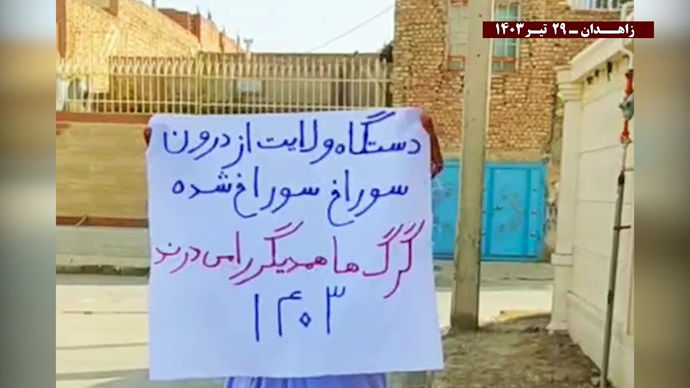 زاهـدان ــ ۲۹ تیـر ۱۴۰۳
دستگاه ولایت از درون
سوراخ سوراخ شده
گرگ ها همدیگر را می درند
۱۴۰۳